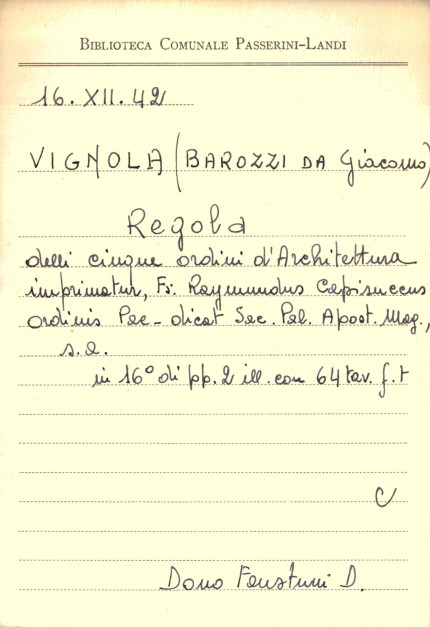 BIBLIOTECA COMUNALE PASSERINI-LANDI
16. XII. 42
VIGNOLA (BAROZZI DA Giacomo)
Regola
delli cinque ordini d'Architettura
imprimatur, Fr. Raymundus Capisuccus
Ordinis Pae-dicat Sac. Pal. Apost. Mag.,
s.a.
in 16° di pp. 2 ill. con 64 tav. f. t
C
Dono Faustini D.